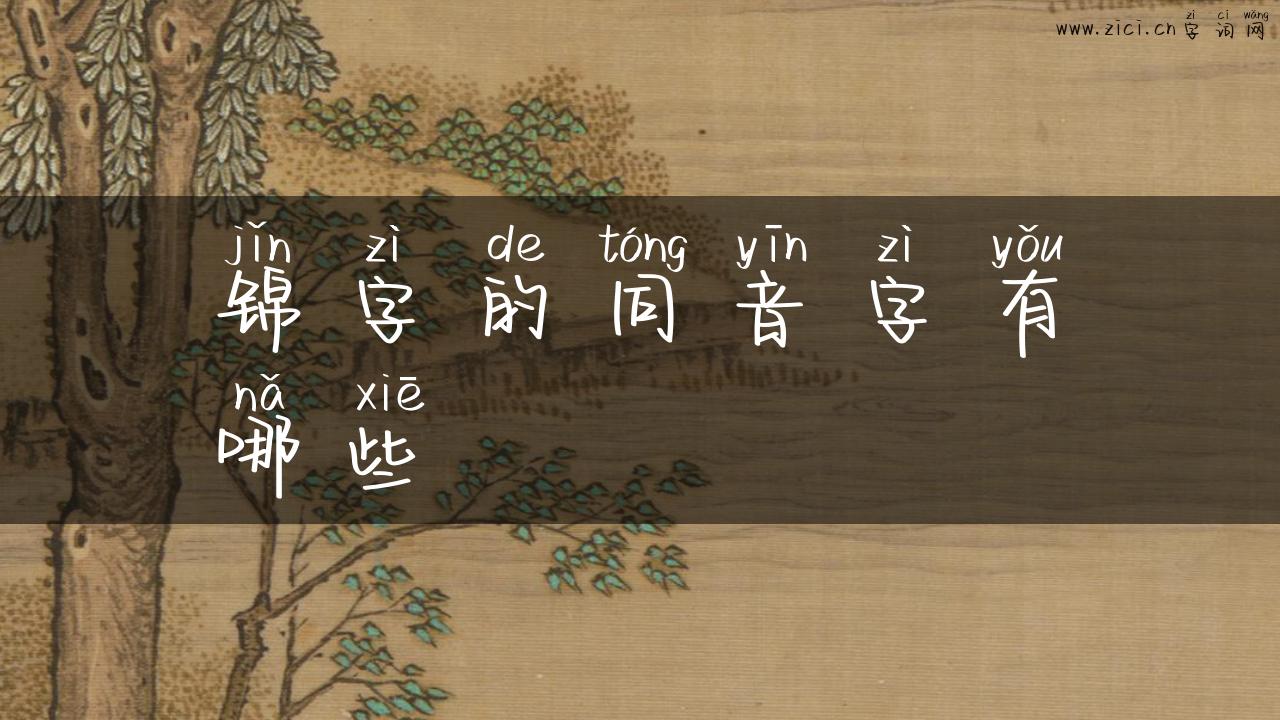 zì cí wǎng
www.zici.cn 字词网
jǐn zì de tóng yīn zì yǒu
锦字的同音字有
nǎ xiē
哪些